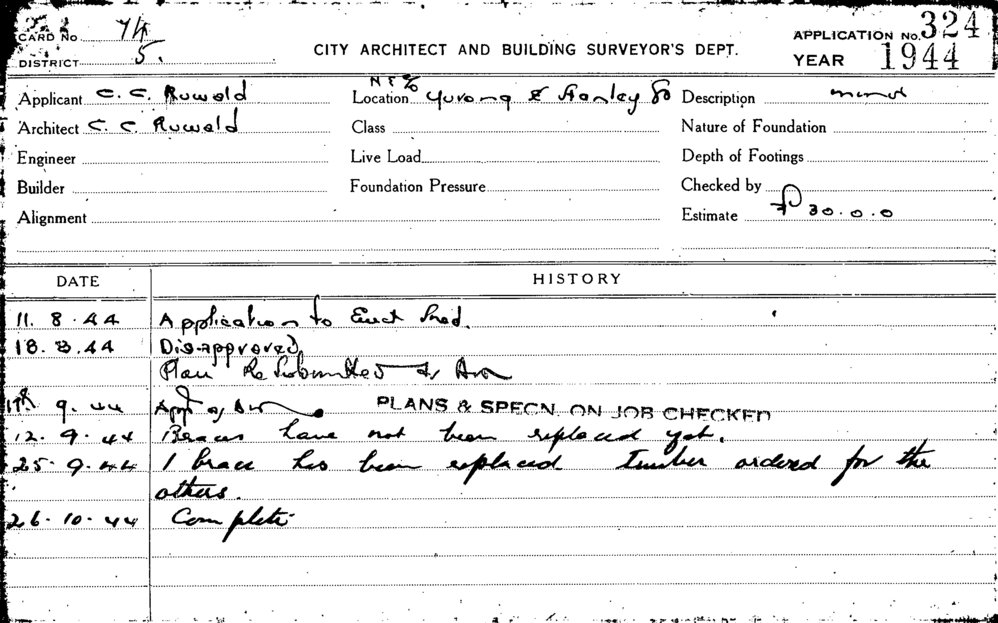 CARD No 74
DISTRICT 5.
CITY ARCHITECT AND BUILDING SURVEYOR'S DEPT.
APPLICATION No. 324
YEAR 1944
Applicant C. C. Ruwald
Location Yurong & Stanley
Description
Architect C. C. Ruwald
Class
Nature of Foundation
Engineer
Live Load
Depth of Footings
Builder
Foundation Pressure
Checked by
Alignment
Estimate £30.0.0
DATE HISTORY
11. 8. 44 Application to Erect Shed.
18. 8. 44 Disapproved
Plan Resubmitted
9. 44 PLANS & SPECN. ON JOB CHECKED
12. 9. 44 Braces have not been replaced yet.
25. 9. 44 1 brace has been replaced Timber ordered for the
others.
26. 10. 44 Complete